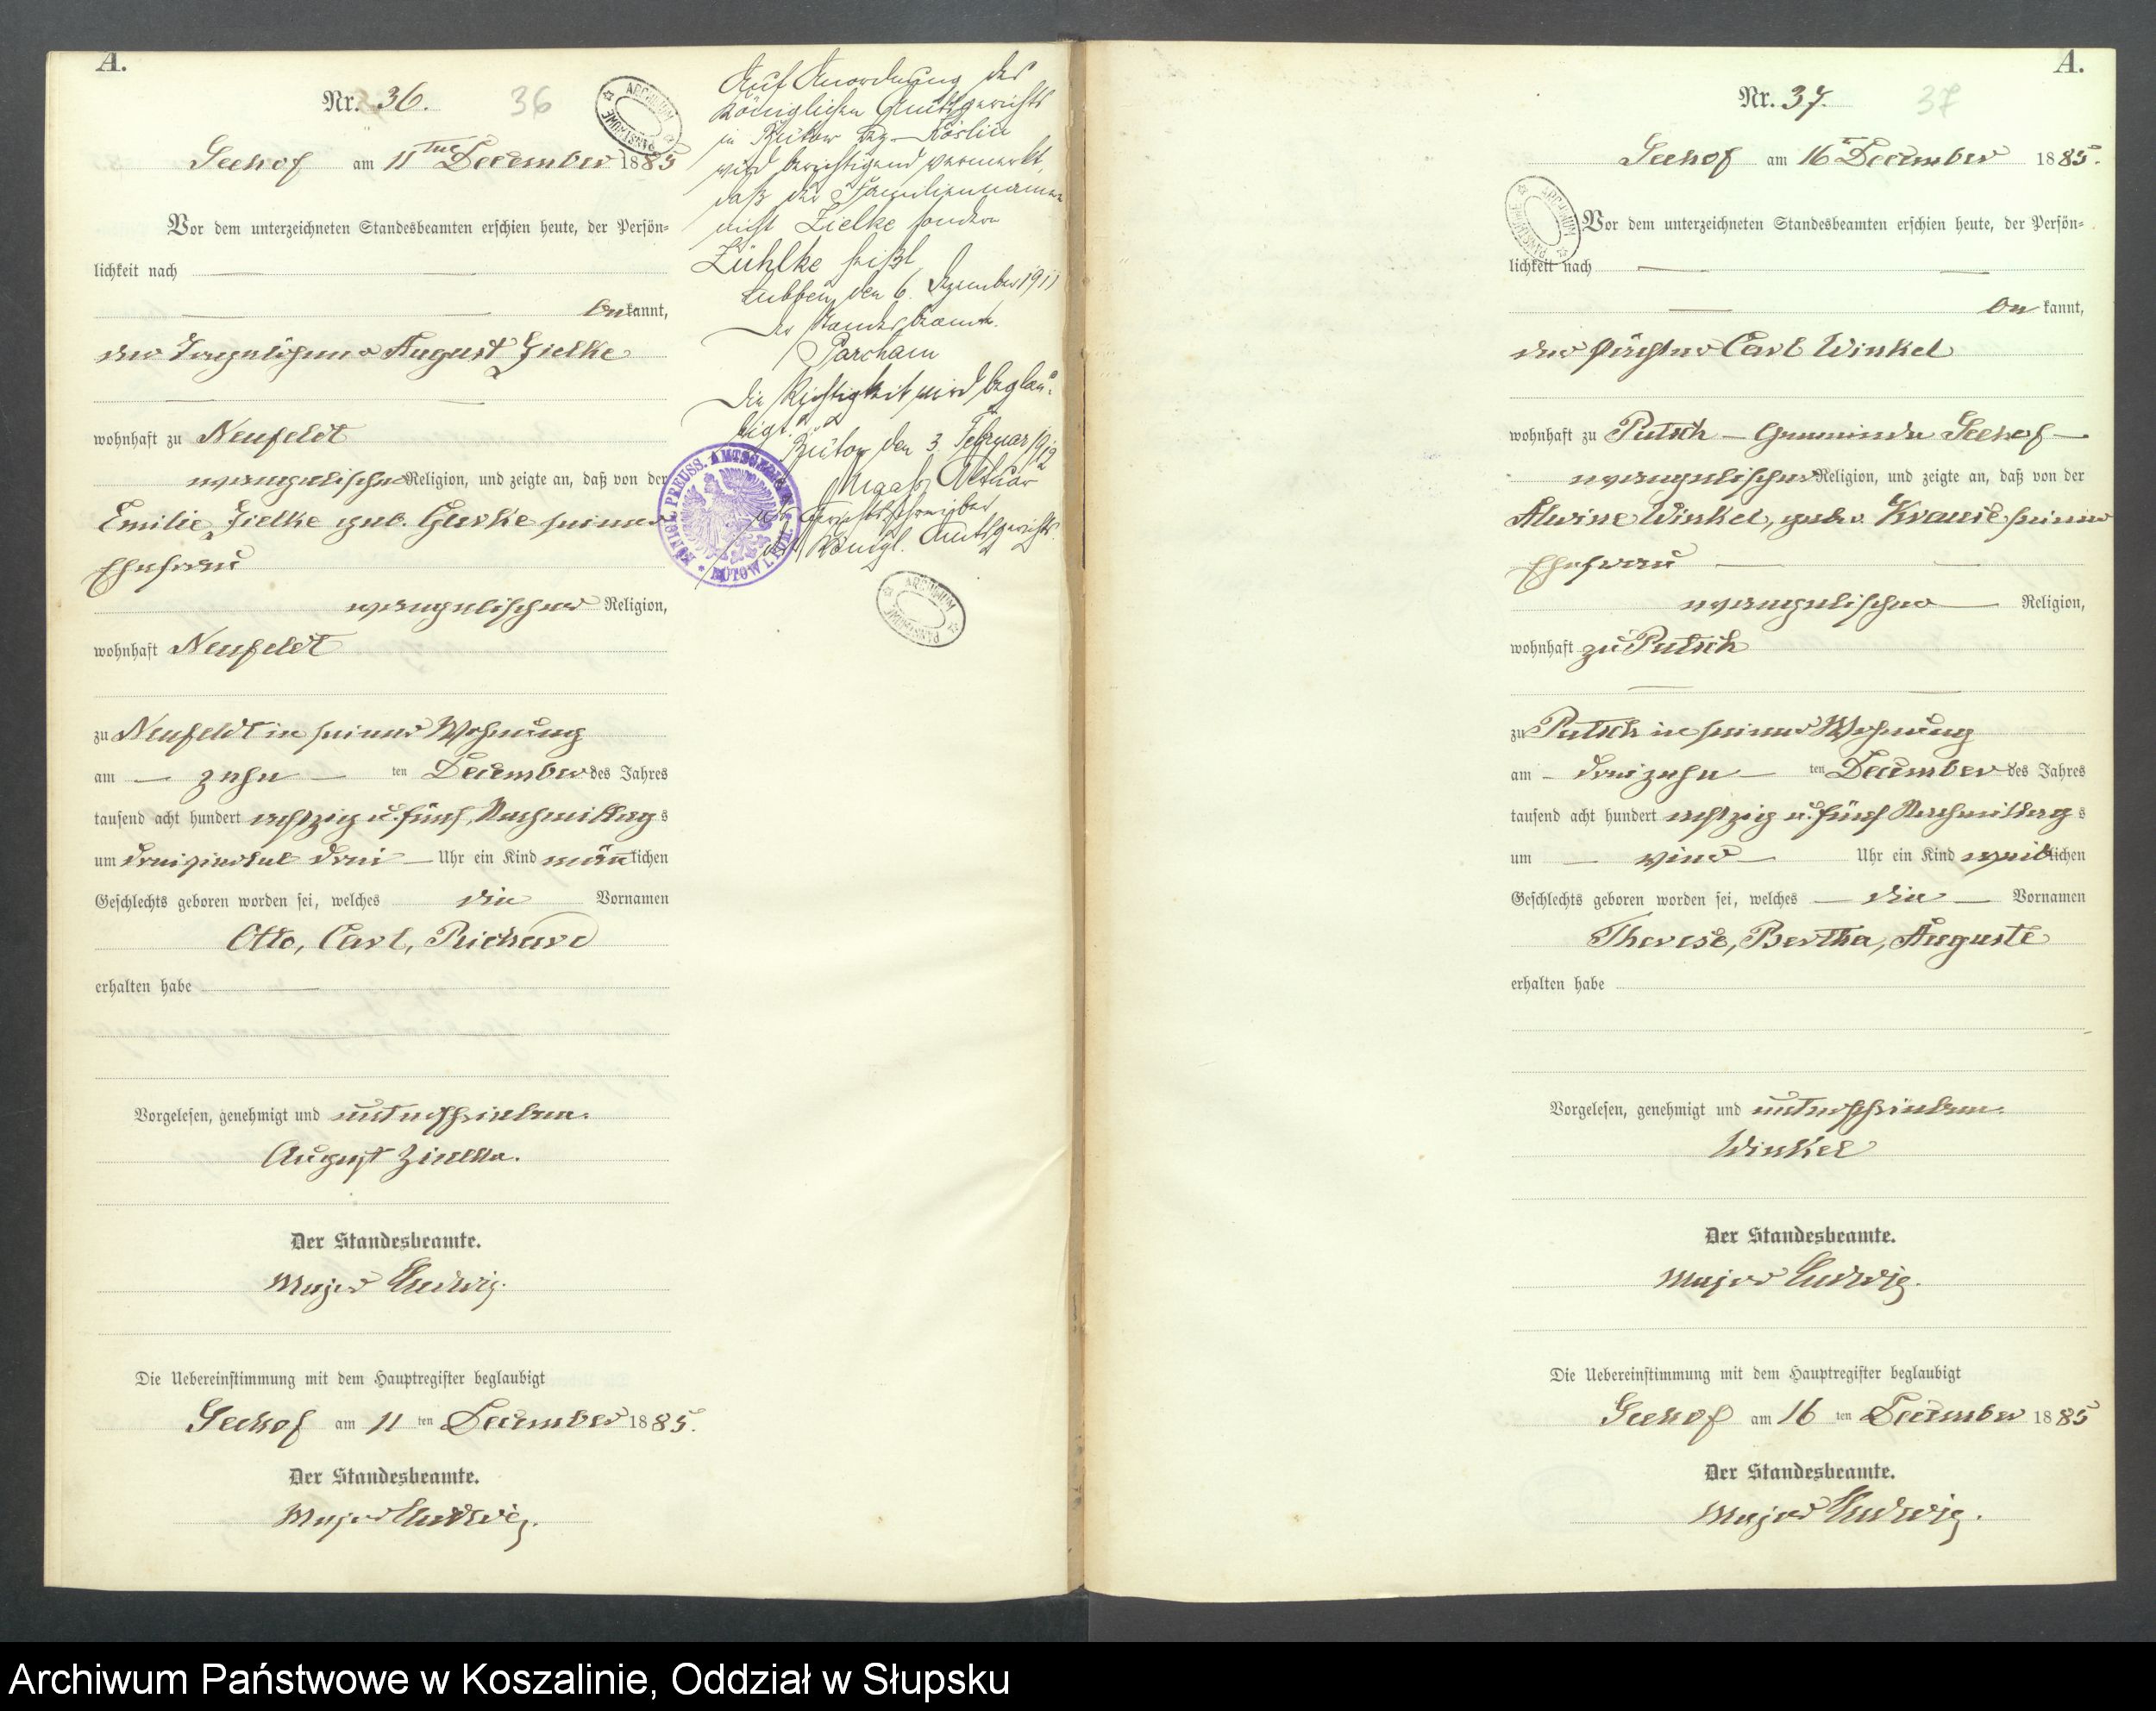 A.
Nr. 36.
36
Seehof am 11 ten December 1885
Vor dem unterzeichneten Standesbeamten erschien heute, der Persön=
lichkeit nach
bekannt,
der August Zielke
wohnhaft zu Neufeldt
evangelischer Religion, und zeigte an, daß von der
Emilie Zielke geb. Gerke seiner
Ehefrau
evangelischer Religion,
wohnhaft Neufeldt
zu Neufeldt in seiner Wohnung
am zehn ten December des Jahres
tausend acht hundert achtzig u. fünf, Nachmittags
um dreiviertel drei Uhr ein Kind männlichen
Geschlechts geboren worden sei, welches die Vornamen
Otto, Carl, Richard
erhalten habe
Vorgelesen, genehmigt und unterschrieben.
August Zielke.
Der Standesbeamte.
Major Ludwig.
Die Uebereinstimmung mit dem Hauptregister beglaubigt
Seehof am 11 ten December 1885.
Der Standesbeamte.
Major Ludwig.
Auf Anordnung des
Königlichen Amtsgerichts
in Bütow Bez. Köslin
wird berichtigend vermerkt,
daß der Familienname
nicht Zielke sondern
Zühlke heißt
Lubben, den 6. Dezember 1911
Der Standesbeamte.
Parcham
Die Richtigkeit wird beglau=
bigt.
Bütow den 3. Februar 1912
Aktuar
als Gerichtsschreiber
des Königl. Amtsgerichts.
KÖNIGL. PREUSS. AMTSGERICHT
* BÜTOW I. POM. *
ARCHIWUM PAŃSTWOWE
ARCHIWUM PAŃSTWOWE
A.
Nr. 37.
37
Seehof am 16 December 1885.
ARCHIWUM PAŃSTWOWE
Vor dem unterzeichneten Standesbeamten erschien heute, der Persön=
lichkeit nach
bekannt,
der Pächter Carl Winkel
wohnhaft zu Putsch – Gemeinde Seehof –
evangelischer Religion, und zeigte an, daß von der
Alwine Winkel, geb. Krause seiner
Ehefrau
evangelischer Religion,
wohnhaft zu Putsch
zu Putsch in seiner Wohnung
am dreizehn ten December des Jahres
tausend acht hundert achtzig u. fünf Nachmittags
um vier Uhr ein Kind weiblichen
Geschlechts geboren worden sei, welches die Vornamen
Therese, Bertha, Auguste
erhalten habe
Vorgelesen, genehmigt und unterschrieben.
Winkel
Der Standesbeamte.
Major Ludwig.
Die Uebereinstimmung mit dem Hauptregister beglaubigt
Seehof am 16 ten December 1885
Der Standesbeamte.
Major Ludwig.
Archiwum Państwowe w Koszalinie, Oddział w Słupsku